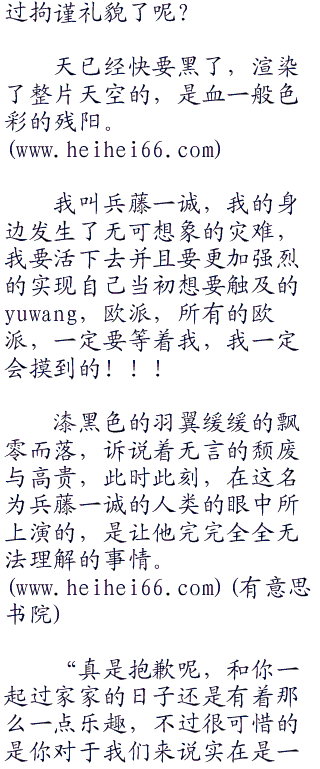 过拘谨礼貌了呢？
天已经快要黑了，渲染
了整片天空的，是血一般色
彩的残阳。
(www.heihei66.com)
我叫兵藤一诚，我的身
边发生了无可想象的灾难，
我要活下去并且要更加强烈
的实现自己当初想要触及的
yuwang，欧派，所有的欧
派，一定要等着我，我一定
会摸到的！！！
漆黑色的羽翼缓缓的飘
零而落，诉说着无言的颓废
与高贵，此时此刻，在这名
为兵藤一诚的人类的眼中所
上演的，是让他完完全全无
法理解的事情。
(www.heihei66.com)(有意思
书院)
“真是抱歉呢，和你一
起过家家的日子还是有着那
么一点乐趣，不过很可惜的
是你对于我们来说实在是一